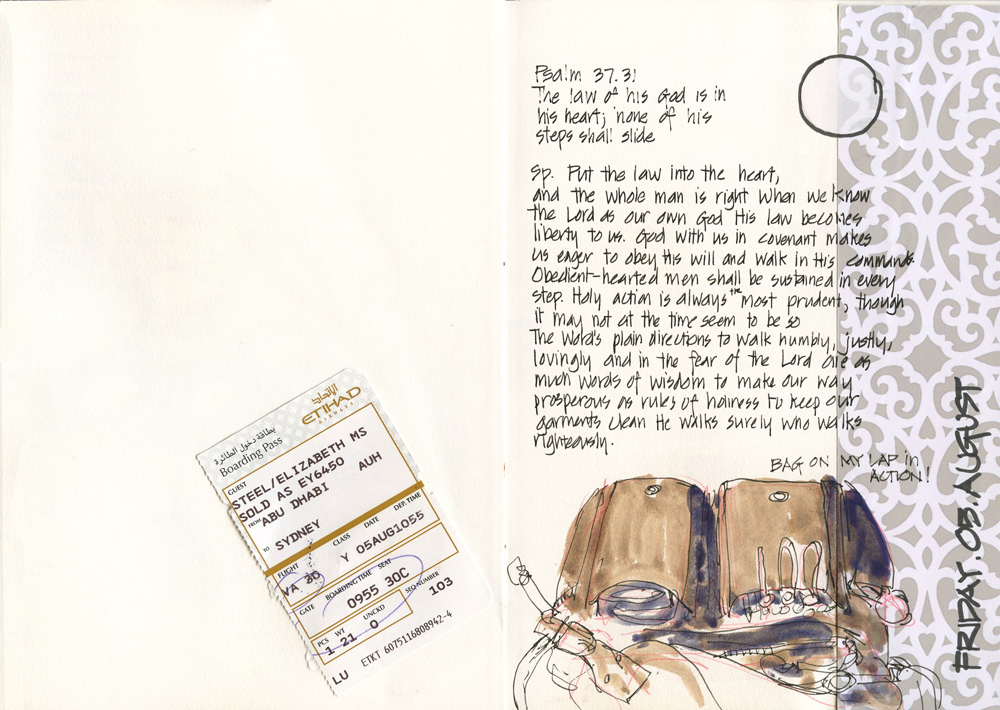 الإتحاد
ETIHAD
AIRWAYS
بطاقة دخول الطائرة
Boarding Pass
GUEST
STEEL/ELIZABETH MS
SOLD AS EY6450
FROM ABU DHABI AUH
TO SYDNEY
FLIGHT CLASS DATE DEP. TIME
VA 30 Y 05AUG1055
GATE BOARDING TIME SEAT
0955 30C
PCS WT UNCKD SEQ-NUMBER
1 21 0 103
ETKT 6075116808942-4
LU
Psalm 37.31
The law of his God is in
his heart; none of his
steps shall slide
Sp. Put the law into the heart,
and the whole man is right When we know
the Lord as our own God His law becomes
liberty to us. God with us in covenant makes
us eager to obey His will and walk in His commands.
Obedient-hearted men shall be sustained in every
step. Holy action is always the most prudent, though
it may not at the time seem to be so
The Word's plain directions to walk humbly, justly,
lovingly and in the fear of the Lord are as
much words of wisdom to make our way
prosperous as rules of holiness to keep our
garments clean He walks surely who walks
righteously.
BAG ON MY LAP in
ACTION!
FRIDAY.05.AUGUST